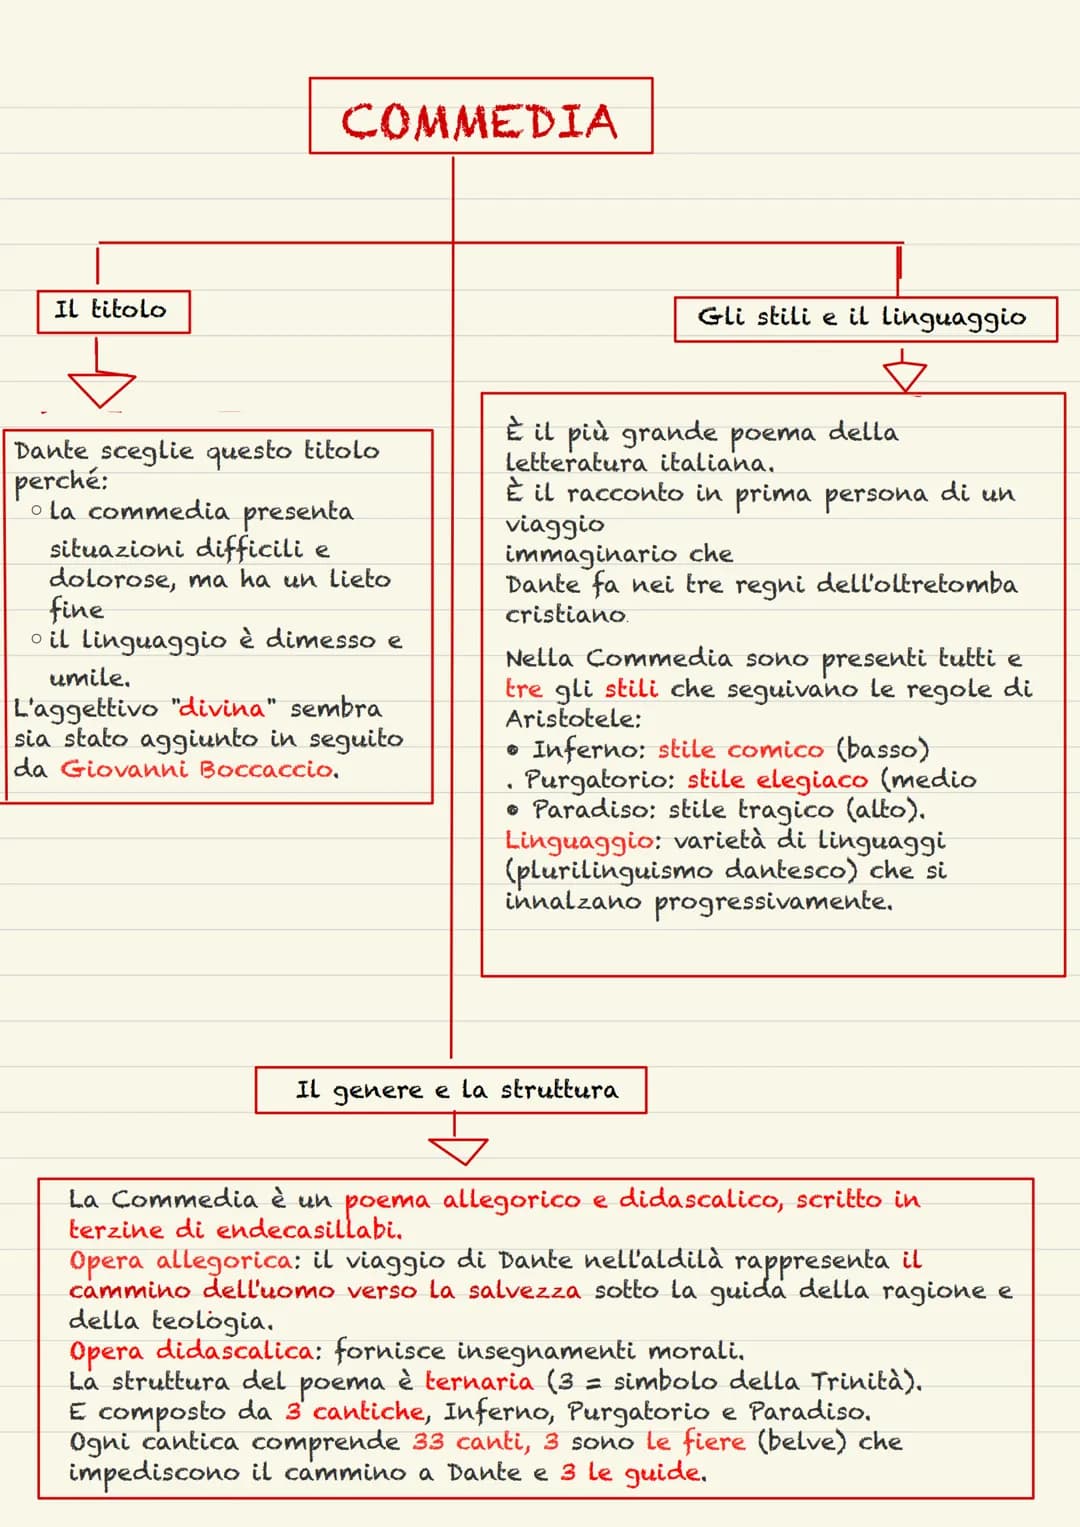 COMMEDIA
Il titolo
Dante sceglie questo titolo
perché:
○ la commedia presenta
situazioni difficili e
dolorose, ma ha un lieto
fine
○ il linguaggio è dimesso e
umile.
L'aggettivo "divina" sembra
sia stato aggiunto in seguito
da Giovanni Boccaccio.
Gli stili e il linguaggio
È il più grande poema della
letteratura italiana.
È il racconto in prima persona di un
viaggio
immaginario che
Dante fa nei tre regni dell'oltretomba
cristiano.
Nella Commedia sono presenti tutti e
tre gli stili che seguivano le regole di
Aristotele:
• Inferno: stile comico (basso)
. Purgatorio: stile elegiaco (medio
• Paradiso: stile tragico (alto).
Linguaggio: varietà di linguaggi
(plurilinguismo dantesco) che si
innalzano progressivamente.
Il genere e la struttura
La Commedia è un poema allegorico e didascalico, scritto in
terzine di endecasillabi.
Opera allegorica: il viaggio di Dante nell'aldilà rappresenta il
cammino dell'uomo verso la salvezza sotto la guida della ragione e
della teologia.
Opera didascalica: fornisce insegnamenti morali.
La struttura del poema è ternaria (3 = simbolo della Trinità).
E composto da 3 cantiche, Inferno, Purgatorio e Paradiso.
Ogni cantica comprende 33 canti, 3 sono le fiere (belve) che
impediscono il cammino a Dante e 3 le guide.